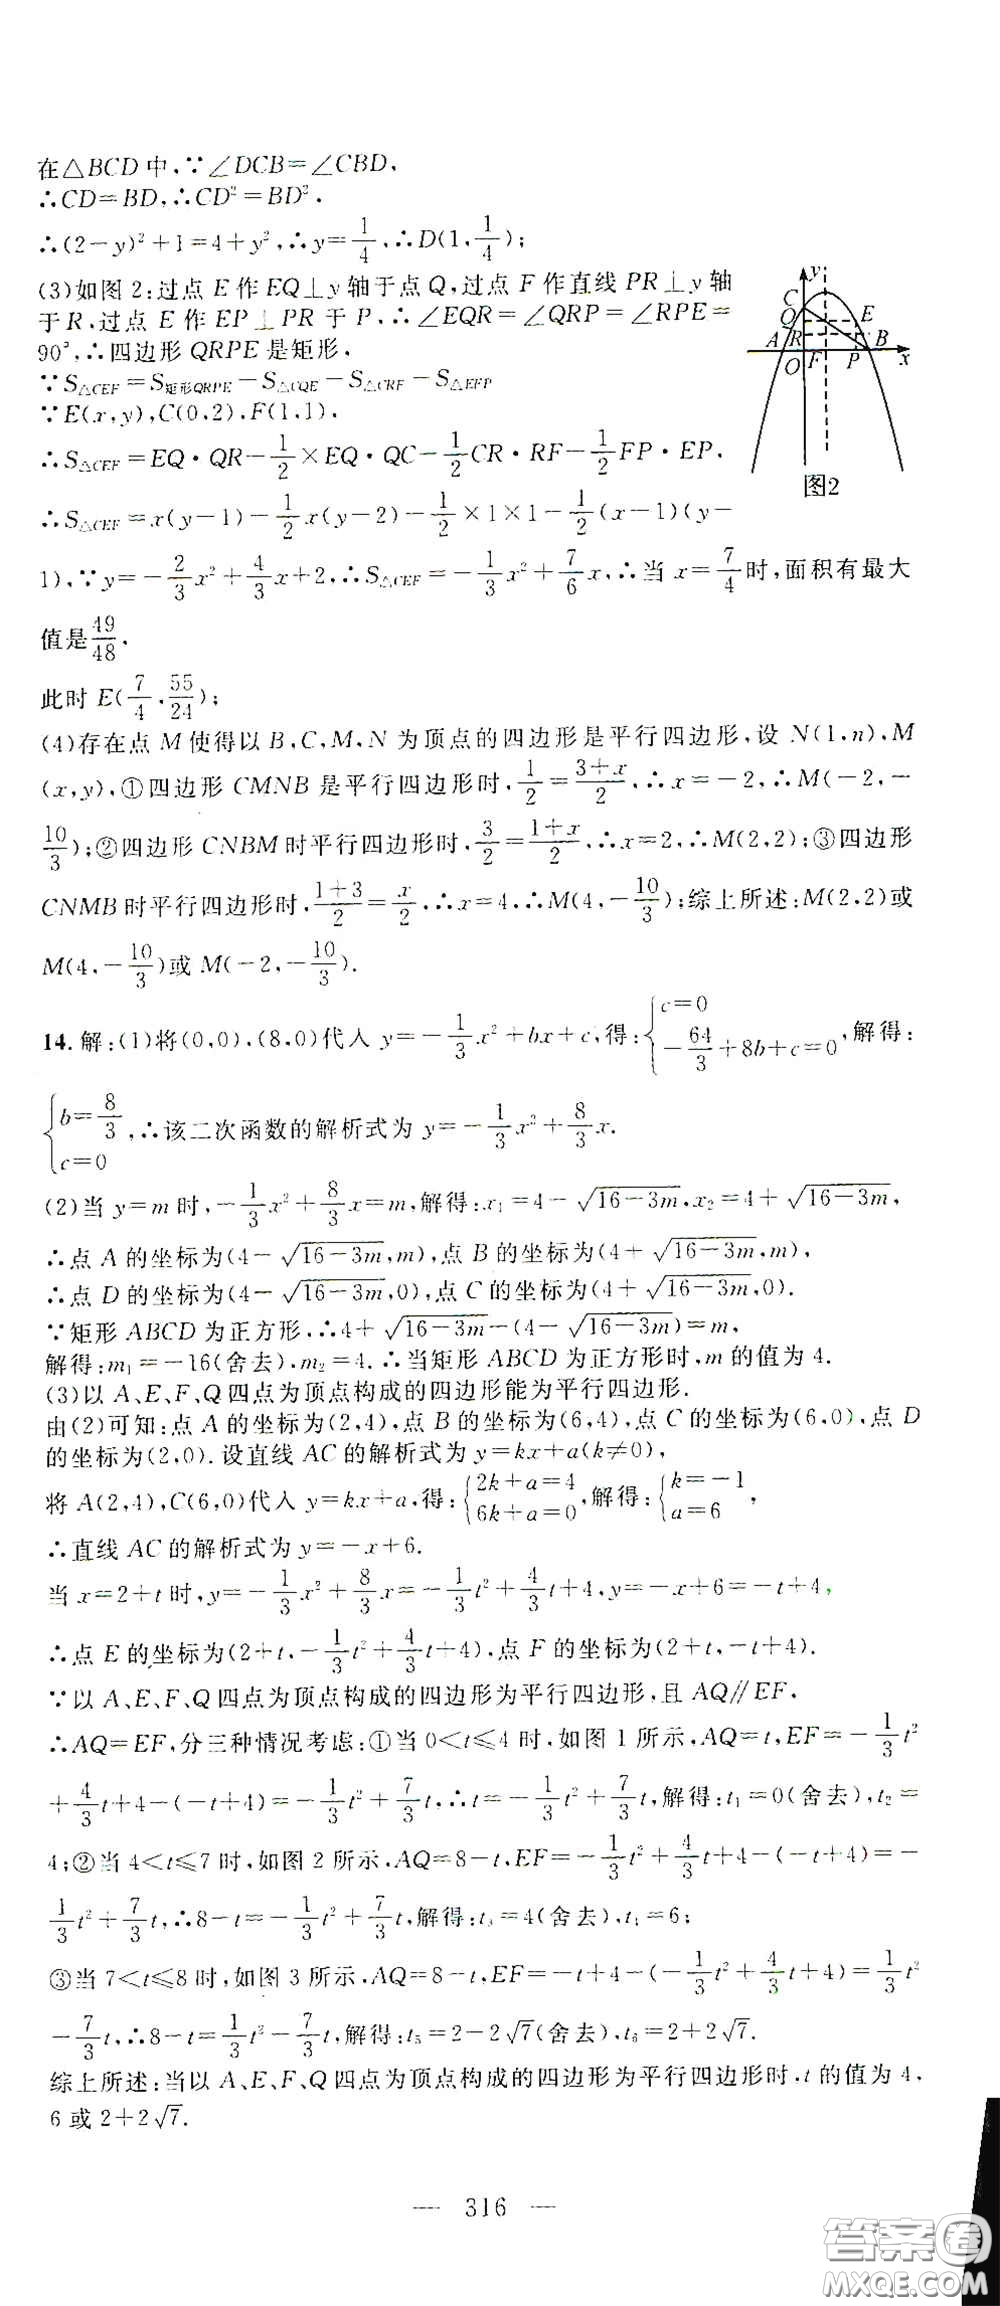 在△BCD中,∵∠DCB=∠CBD,
∴CD=BD,∴CD²=BD².
∴(2-y)²+1=4+y²,∴y=1/4,∴D(1,1/4);
(3)如图2:过点E作EQ⊥y轴于点Q,过点F作直线PR⊥y轴
于R,过点E作EP⊥PR于P,∴∠EQR=∠QRP=∠RPE=
90°,∴四边形QRPE是矩形,
∵S△CEF=S矩形QRPE-S△CQE-S△CRF-S△EFP
∵E(x,y),C(0,2),F(1,1),
∴S△CEF=EQ·QR-1/2×EQ·QC-1/2CR·RF-1/2FP·EP,
∴S△CEF=x(y-1)-1/2x(y-2)-1/2×1×1-1/2(x-1)(y-
1),∵y=-2/3x²+4/3x+2,∴S△CEF=-1/3x²+7/6x,∴当x=7/4时,面积有最大
值是49/48.
此时E(7/4,55/24);
y
C
Q
E
A
R
B
O
F
P
x
图2
(4)存在点M使得以B,C,M,N为顶点的四边形是平行四边形,设N(1,n),M
(x,y),①四边形CMNB是平行四边形时,1/2=(3+x)/2,∴x=-2,∴M(-2,-
10/3);②四边形CNBM时平行四边形时,3/2=(1+x)/2,∴x=2,∴M(2,2);③四边形
CNMB时平行四边形时,(1+3)/2=x/2,∴x=4,∴M(4,-10/3);综上所述:M(2,2)或
M(4,-10/3)或M(-2,-10/3).
14.解:(1)将(0,0),(8,0)代入y=-1/3x²+bx+c,得:{c=0 -64/3+8b+c=0,解得:
{b=8/3 c=0,∴该二次函数的解析式为y=-1/3x²+8/3x.
(2)当y=m时,-1/3x²+8/3x=m,解得:x₁=4-√(16-3m),x₂=4+√(16-3m),
∴点A的坐标为(4-√(16-3m),m),点B的坐标为(4+√(16-3m),m),
∴点D的坐标为(4-√(16-3m),0),点C的坐标为(4+√(16-3m),0).
∵矩形ABCD为正方形,∴4+√(16-3m)-(4-√(16-3m))=m,
解得:m₁=-16(舍去),m₂=4.∴当矩形ABCD为正方形时,m的值为4.
(3)以A、E、F、Q四点为顶点构成的四边形能为平行四边形.
由(2)可知:点A的坐标为(2,4),点B的坐标为(6,4),点C的坐标为(6,0),点D
的坐标为(2,0).设直线AC的解析式为y=kx+a(k≠0),
将A(2,4),C(6,0)代入y=kx+a,得:{2k+a=4 6k+a=0,解得:{k=-1 a=6,
∴直线AC的解析式为y=-x+6.
当x=2+t时,y=-1/3x²+8/3x=-1/3t²+4/3t+4,y=-x+6=-t+4,
∴点E的坐标为(2+t,-1/3t²+4/3t+4),点F的坐标为(2+t,-t+4).
∵以A、E、F、Q四点为顶点构成的四边形为平行四边形,且AQ∥EF,
∴AQ=EF,分三种情况考虑:①当0<t≤4时,如图1所示,AQ=t,EF=-1/3t²
+4/3t+4-(-t+4)=-1/3t²+7/3t,∴t=-1/3t²+7/3t,解得:t₁=0(舍去),t₂=
4;②当4<t≤7时,如图2所示,AQ=8-t,EF=-1/3t²+4/3t+4-(-t+4)=-
1/3t²+7/3t,∴8-t=-1/3t²+7/3t,解得:t₃=4(舍去),t₄=6;
③当7<t≤8时,如图3所示,AQ=8-t,EF=-t+4-(-1/3t²+4/3t+4)=1/3t²
-7/3t,∴8-t=1/3t²-7/3t,解得:t₅=2-2√7(舍去),t₆=2+2√7.
综上所述:当以A、E、F、Q四点为顶点构成的四边形为平行四边形时,t的值为4,
6或2+2√7.
— 316 —
答案卷
MXQE.COM